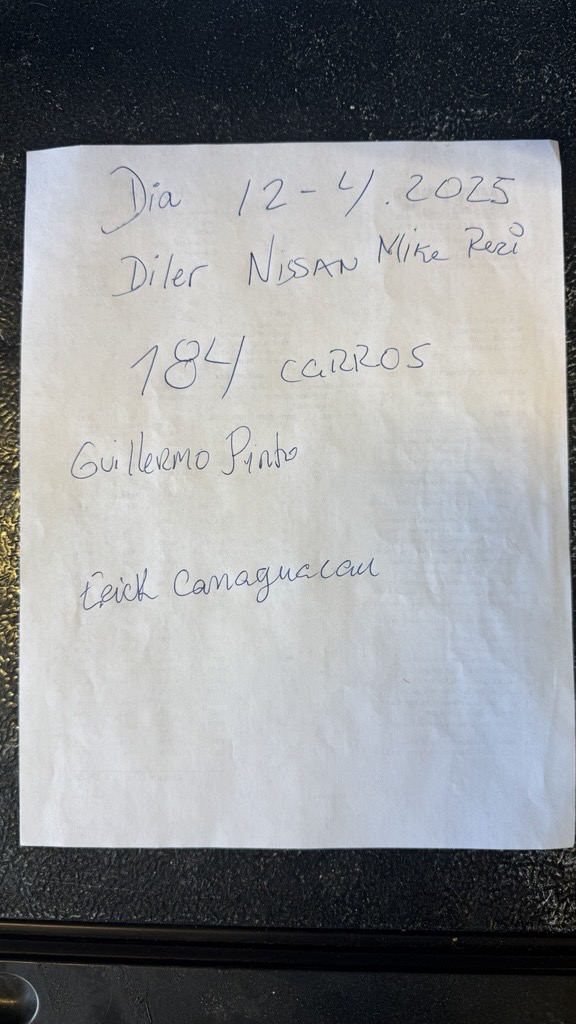 Dia 12-4.2025
Diler NISSAN Mike Rezi
184 CARROS
Guillermo Pinto
Erick Camaguacan